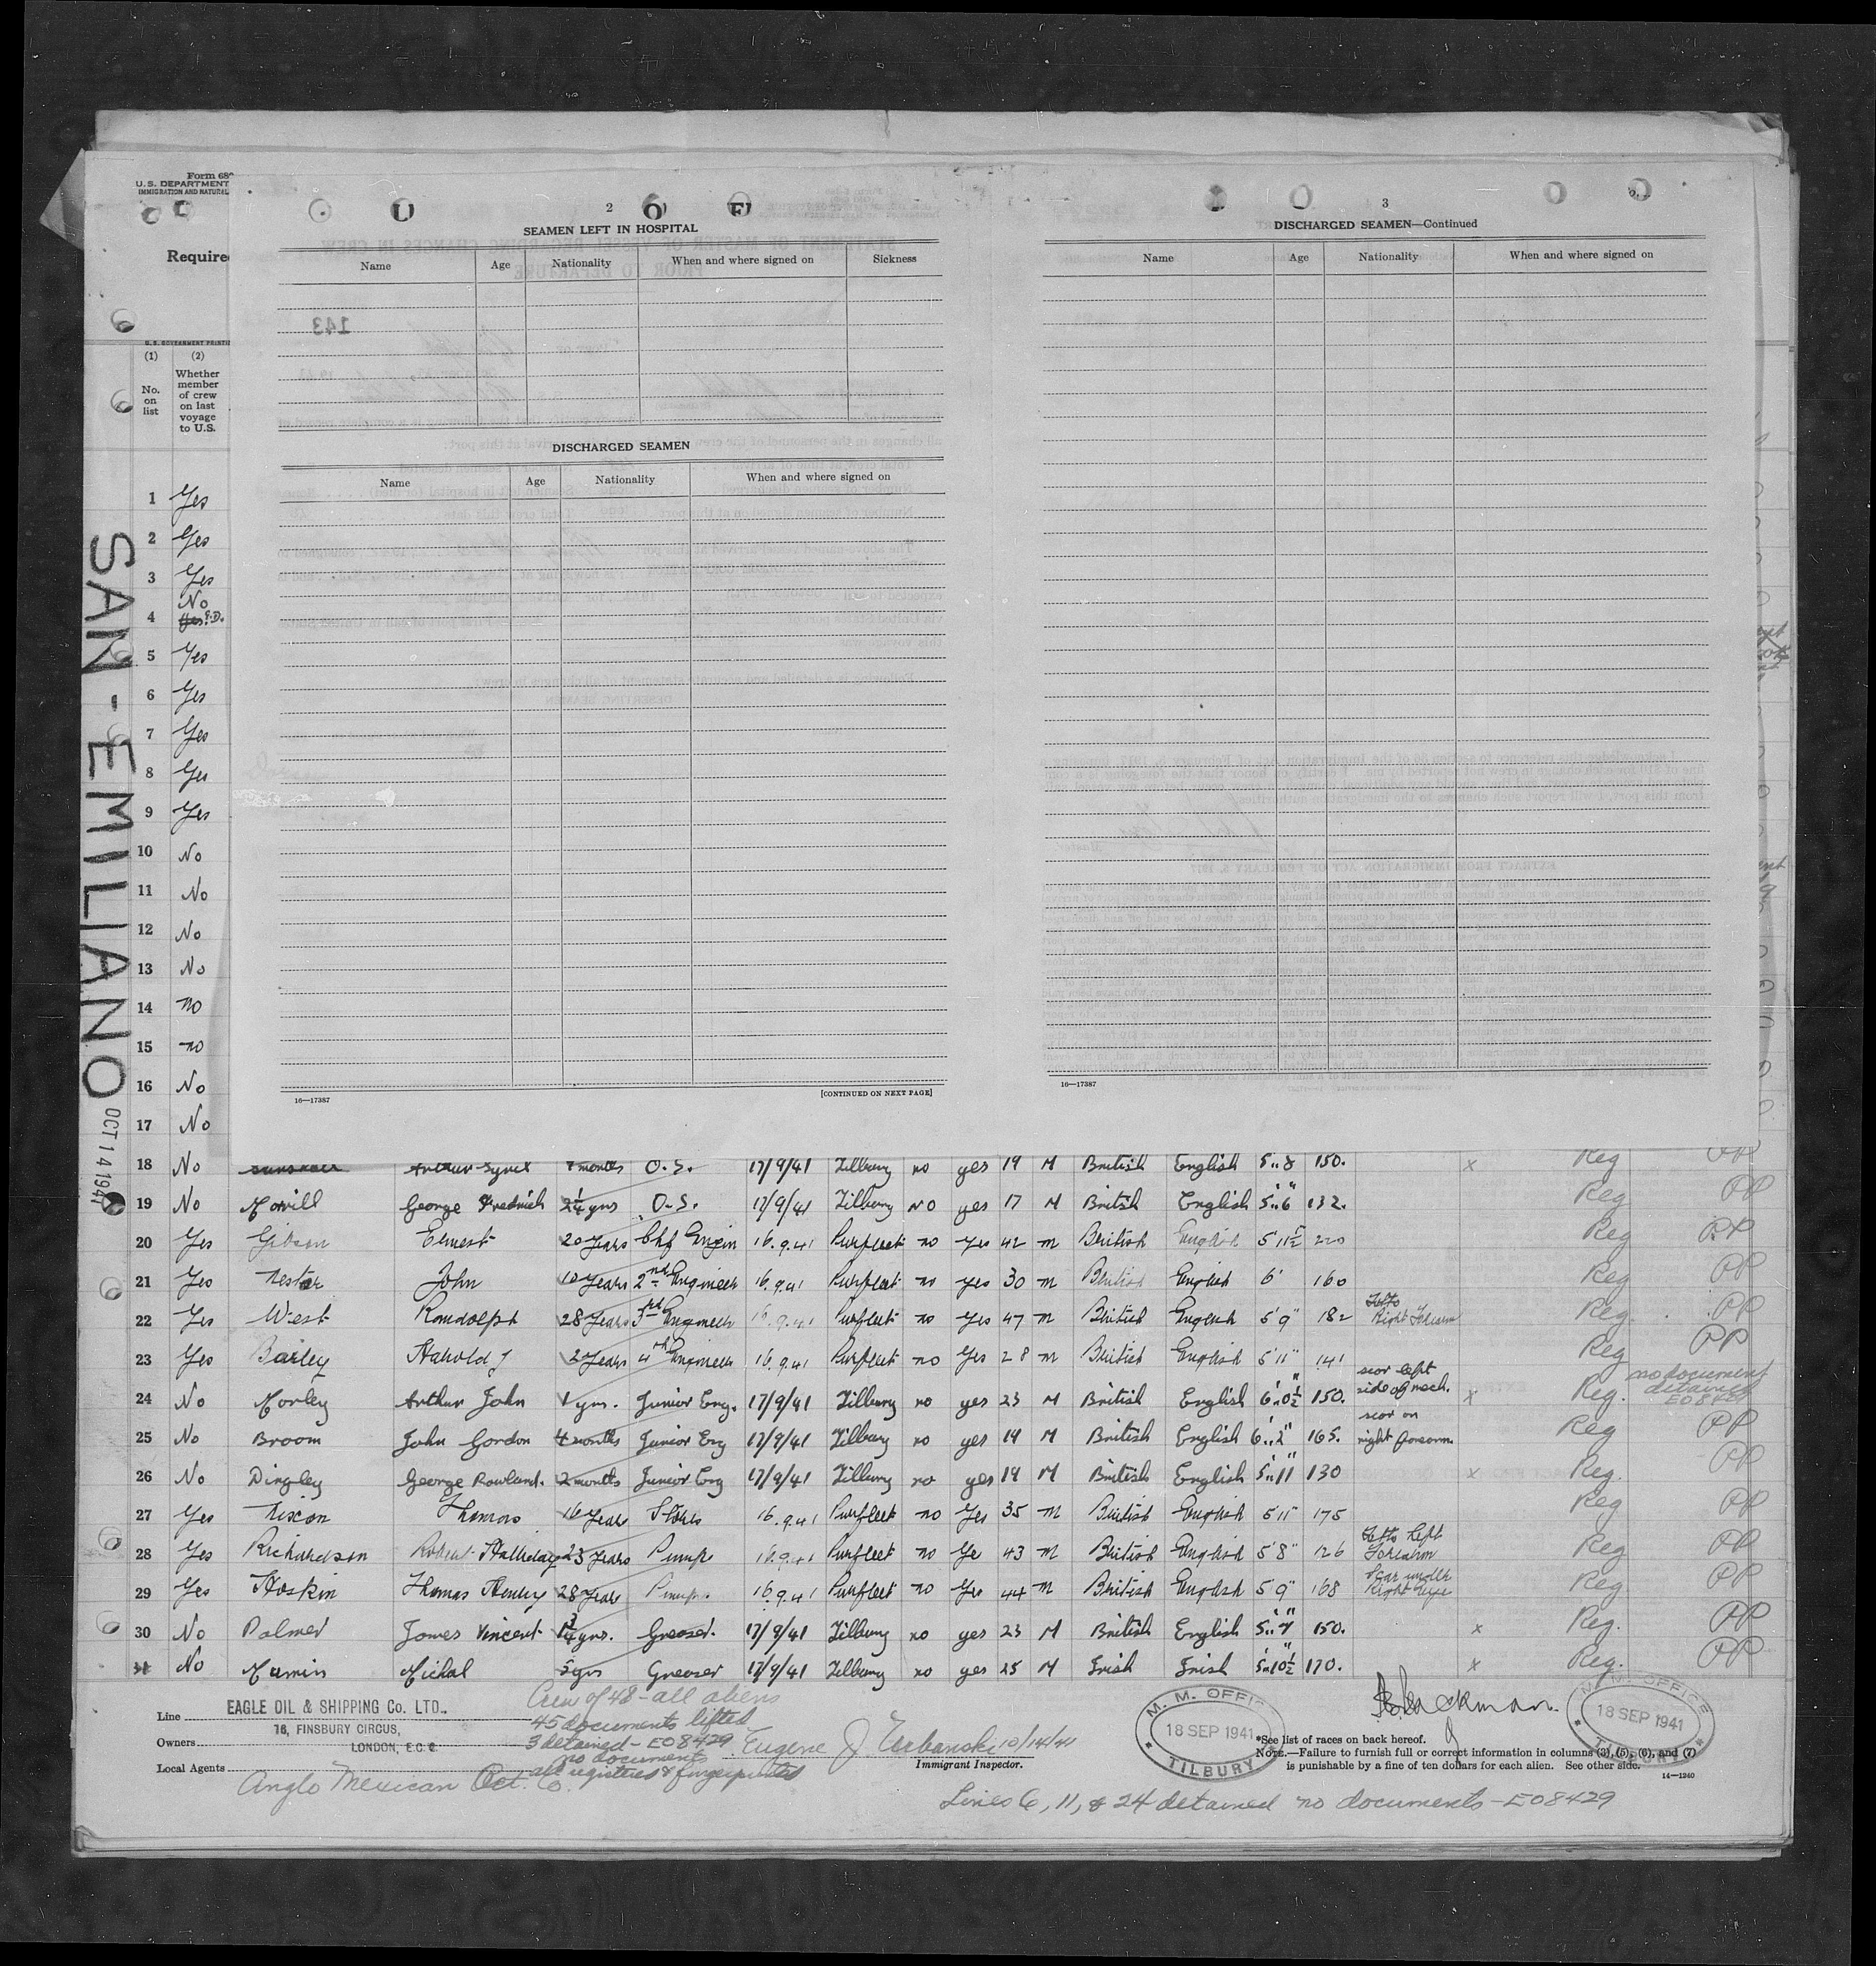 Form 68
U.S. DEPARTMENT
IMMIGRATION AND NATURAL
Require
U. S. GOVERNMENT PRINTI
(1) (2)
No. on list
Whether member of crew on last voyage to U.S.
2
SEAMEN LEFT IN HOSPITAL
Name Age Nationality When and where signed on Sickness
143
DISCHARGED SEAMEN
Name Age Nationality When and where signed on
16—17387 [CONTINUED ON NEXT PAGE]
3
DISCHARGED SEAMEN—Continued
Name Age Nationality When and where signed on
16—17387
SAN-EMILIANO
OCT 14 1941
1 Yes
2 Yes
3 Yes
4 No Yes
5 Yes
6 Yes
7 Yes
8 Yes
9 Yes
10 No
11 No
12 No
13 No
14 no
15 no
16 No
17 No
18 No Arthur months O.S. 17/9/41 Tilbury no yes 19 M British English 5..8 150. x Reg PP
19 No George Fredrick 2¼ yrs O.S. 17/9/41 Tilbury No yes 17 M British English 5'..6" 132. Reg PP
20 Yes Gibson Ernest 20 Years Chf Engin 16.9.41 Purfleet no Yes 42 m British English 5'11½ 220 Reg PP
21 Yes Nester John 10 Years 2nd Engineer 16.9.41 Purfleet no Yes 30 m British English 6' 160 Reg PP
22 Yes West Randolph 28 Years 3rd Engineer 16.9.41 Purfleet no Yes 47 m British English 5'9" 182 Tatto Right Forearm Reg. PP
23 Yes Bailey Harold J 2 Years 4th Engineer 16.9.41 Purfleet no Yes 28 m British English 5'11" 141 Reg PP
24 No Morley Arthur John 1 yrs. Junior Eng. 17/9/41 Tilbury no yes 23 M British English 6'..0½" 150. scar left side of neck. x Reg. no document detained E08429
25 No Broom John Gordon 4 months Junior Eng 17/9/41 Tilbury no yes 19 M British English 6'..2" 165. scar on right forearm. Reg PP
26 No Dingley George Rowland. 2 months Junior Eng 17/9/41 Tilbury no yes 19 M British English 5'..11" 130 x Reg. PP
27 Yes Nixon Thomas 16 Years Stores 16.9.41 Purfleet no Yes 35 m British English 5'11" 175 Reg PP
28 Yes Richardson Robert Halliday 23 Years Pump. 16.9.41 Purfleet no Ye 43 m British English 5'8" 126 Tatto Left Forearm Reg PP
29 Yes Hoskin Thomas Henry 28 Years Pump. 16.9.41 Purfleet no Yes 44 m British English 5'9" 168 Scar under Right Eye Reg PP
30 No Palmer James Vincent 1¾ yrs. Greaser. 17/9/41 Tilbury no yes 23 M British English 5'..7" 150. x Reg. PP
31 No Michal 5 yrs Greaser 17/9/41 Tilbury no yes 25 M Irish Irish 5'..10½" 170. x Reg. PP
Line EAGLE OIL & SHIPPING Co. LTD.,
Owners 16, FINSBURY CIRCUS,
LONDON, E.C.2
Local Agents Anglo Mexican Pet. Co.
Crew of 48 - all aliens
45 documents lifted
3 detained - E08429
no documents
all registered & fingerprinted
Eugene J Terbanski 10/14/41
Immigrant Inspector.
M. M. OFFICE
18 SEP 1941
TILBURY
M. M. OFFICE
18 SEP 1941
TILBURY
*See list of races on back hereof.
NOTE.—Failure to furnish full or correct information in columns (3), (5), (6), and (7)
is punishable by a fine of ten dollars for each alien. See other side.
14—1240
Lines 6, 11, & 24 detained no documents - E08429